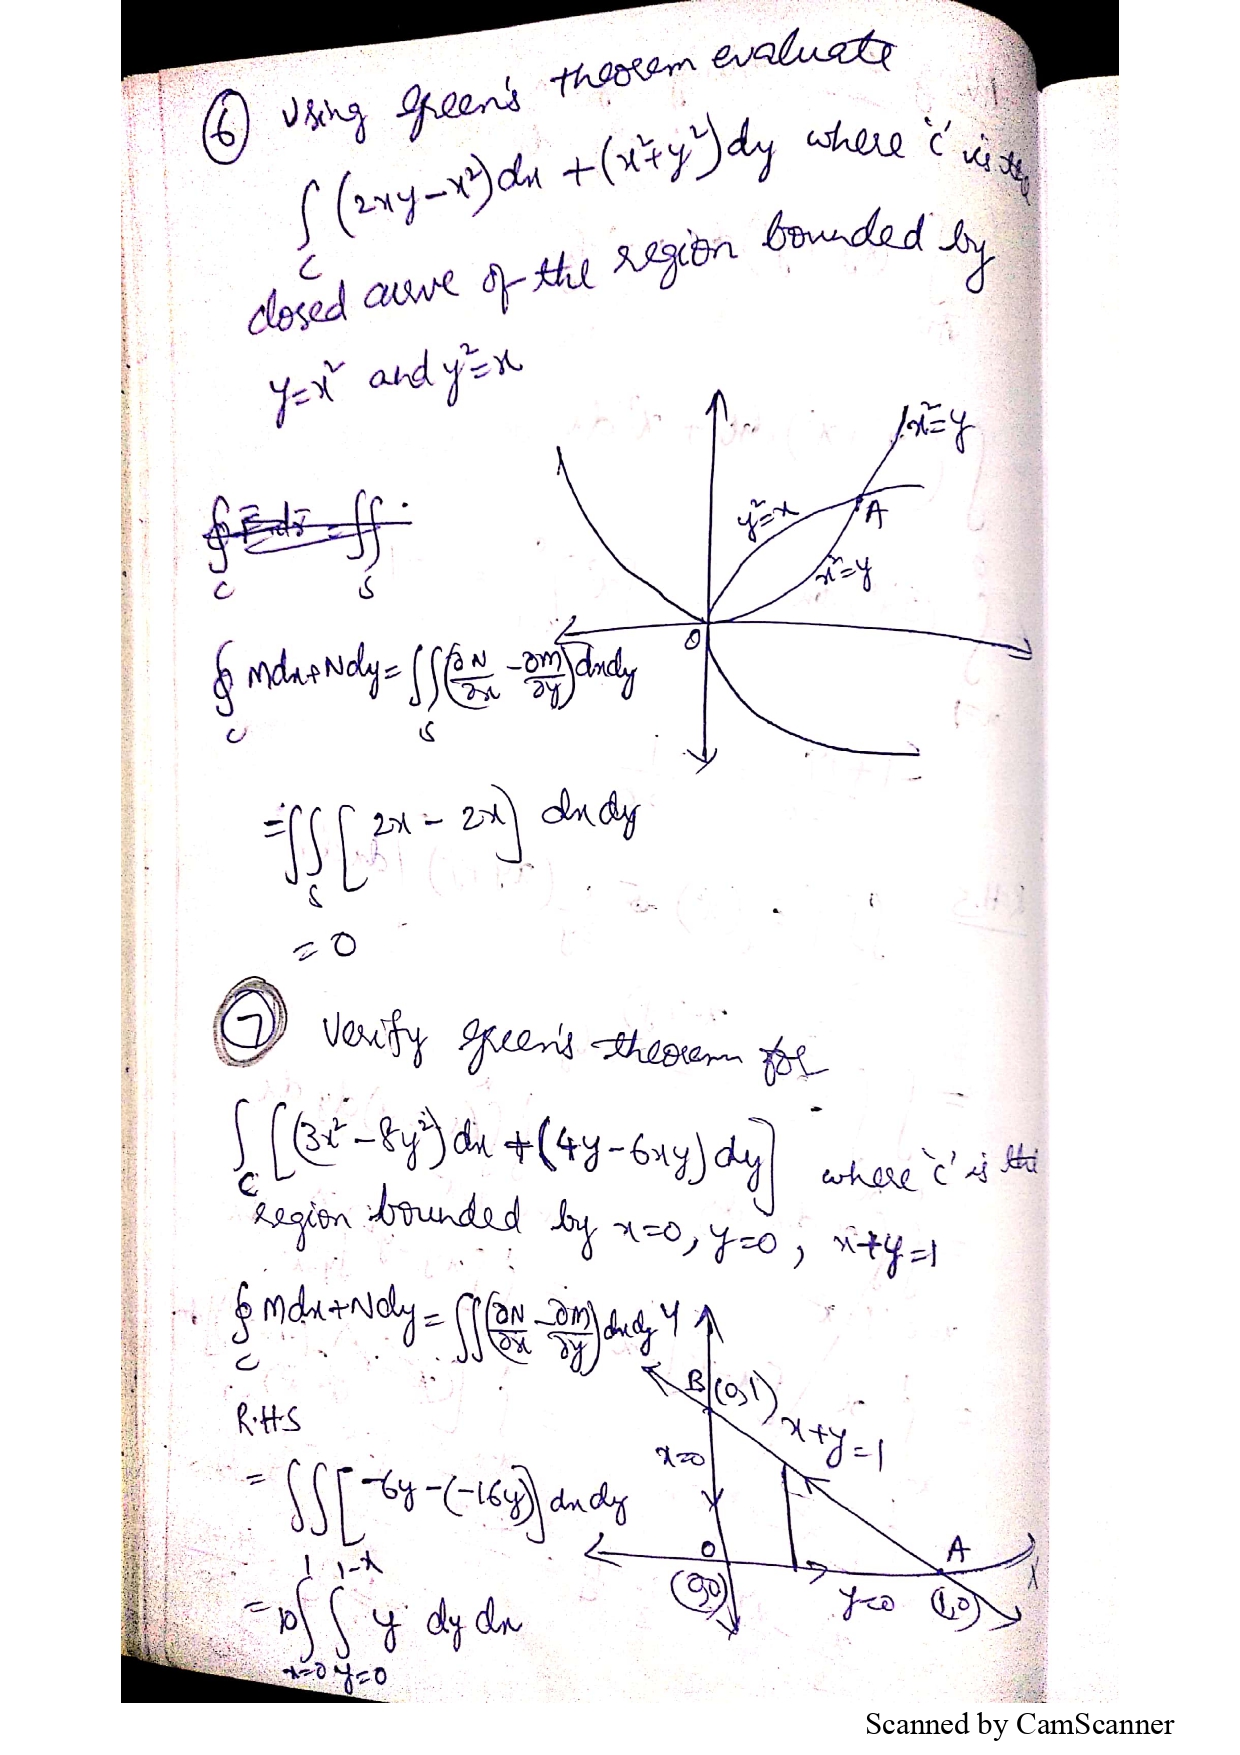 6 Using Green's theorem evaluate
∫_C (2xy-x²)dx + (x²+y²)dy where 'c' is the
closed curve of the region bounded by
y=x² and y²=x
x²=y
y²=x
A
x²=y
O
∮_C Mdx+Ndy = ∬_S (∂N/∂x - ∂M/∂y) dxdy
= ∬_S [2x - 2x] dxdy
= 0
7 Verify Green's theorem for
∫_C [(3x²-8y²)dx + (4y-6xy)dy] where 'c' is the
region bounded by x=0, y=0, x+y=1
∮_C Mdx+Ndy = ∬ (∂N/∂x - ∂M/∂y) dxdy
Y
B(0,1)
x+y=1
x=0
R.H.S
= ∬ [-6y-(-16y)] dxdy
O
A
X
(0,0)
y=0
(1,0)
= 10 ∫_{x=0}^{1} ∫_{y=0}^{1-x} y dy dx
Scanned by CamScanner